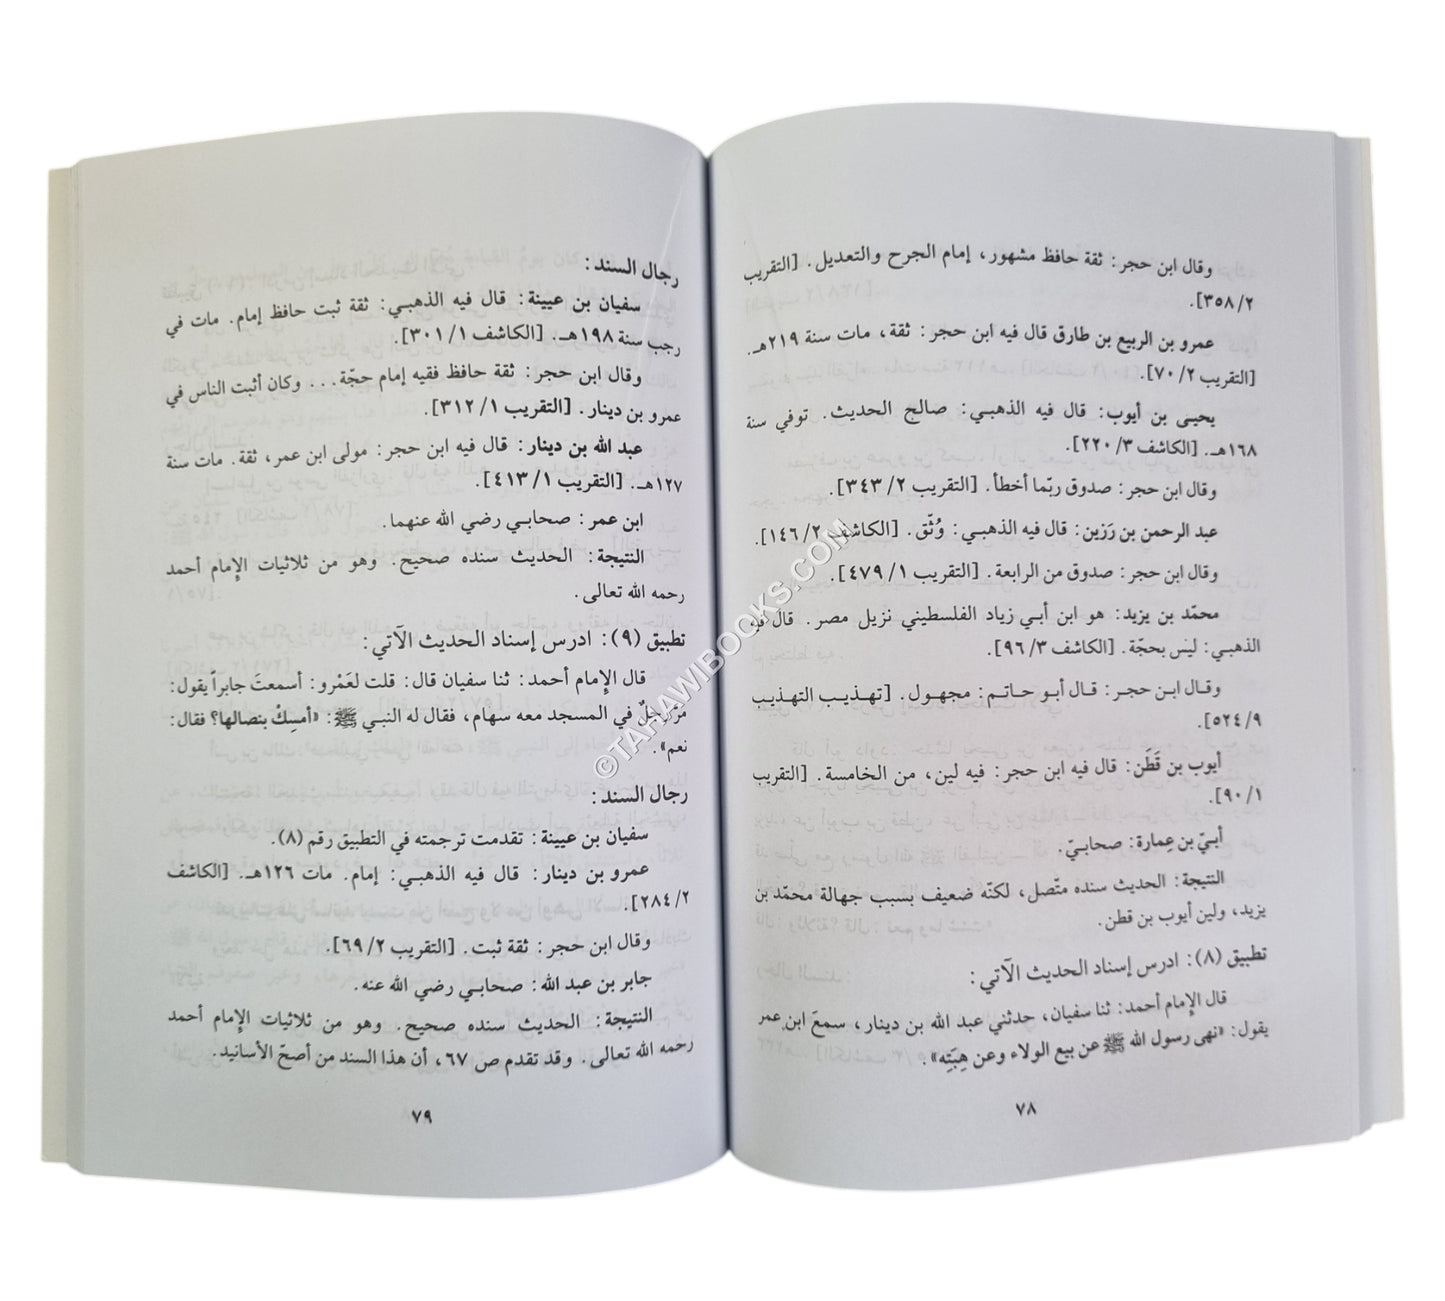 وقال ابن حجر: ثقة حافظ مشهور، إمام الجرح والتعديل. [التقريب
٢/ ٣٥٨].
عمرو بن الربيع بن طارق قال فيه ابن حجر: ثقة، مات سنة ٢١٩هـ.
[التقريب ٢/ ٧٠].
يحيى بن أيوب: قال فيه الذهبي: صالح الحديث. توفي سنة
١٦٨هـ. [الكاشف ٣/ ٢٢٠].
وقال ابن حجر: صدوق ربّما أخطأ. [التقريب ٢/ ٣٤٣].
عبد الرحمن بن رَزين: قال فيه الذهبي: وُثّق. [الكاشف ٢/ ١٤٦].
وقال ابن حجر: صدوق من الرابعة. [التقريب ١/ ٤٧٩].
محمّد بن يزيد: هو ابن أبي زياد الفلسطيني نزيل مصر. قال فيه
الذهبي: ليس بحجّة. [الكاشف ٣/ ٩٦].
وقال ابن حجر: قال أبو حاتم: مجهول. [تهذيب التهذيب
٩/ ٥٢٤].
أيوب بن قَطَن: قال فيه ابن حجر: فيه لين، من الخامسة. [التقريب
١/ ٩٠].
أبيّ بن عِمارة: صحابيّ.
النتيجة: الحديث سنده متّصل، لكنّه ضعيف بسبب جهالة محمّد بن
يزيد، ولين أيوب بن قطن.
تطبيق (٨): ادرس إسناد الحديث الآتي:
قال الإمام أحمد: ثنا سفيان، حدثني عبد الله بن دينار، سمعَ ابن عمر
يقول: «نهى رسول الله ﷺ عن بيع الولاء وعن هِبَتِه».
٧٨
رجال السند:
سفيان بن عيينة: قال فيه الذهبي: ثقة ثبت حافظ إمام. مات في
رجب سنة ١٩٨هـ. [الكاشف ١/ ٣٠١].
وقال ابن حجر: ثقة حافظ فقيه إمام حجّة... وكان أثبت الناس في
عمرو بن دينار. [التقريب ١/ ٣١٢].
عبد الله بن دينار: قال فيه ابن حجر: مولى ابن عمر، ثقة. مات سنة
١٢٧هـ. [التقريب ١/ ٤١٣].
ابن عمر: صحابي رضي الله عنهما.
النتيجة: الحديث سنده صحيح. وهو من ثلاثيات الإمام أحمد
رحمه الله تعالى.
تطبيق (٩): ادرس إسناد الحديث الآتي:
قال الإمام أحمد: ثنا سفيان قال: قلت لعَمْرو: أسمعتَ جابراً يقول:
مَرّ رجلٌ في المسجد معه سهام، فقال له النبي ﷺ: «أمسِكْ بنصالها؟ فقال:
نعم».
رجال السند:
سفيان بن عيينة: تقدمت ترجمته في التطبيق رقم (٨).
عمرو بن دينار: قال فيه الذهبي: إمام. مات ١٢٦هـ. [الكاشف
٢/ ٢٨٤].
وقال ابن حجر: ثقة ثبت. [التقريب ٢/ ٦٩].
جابر بن عبد الله: صحابي رضي الله عنه.
النتيجة: الحديث سنده صحيح. وهو من ثلاثيات الإمام أحمد
رحمه الله تعالى. وقد تقدم ص ٦٧، أن هذا السند من أصحّ الأسانيد.
٧٩
©TAHAWIBOOKS.COM